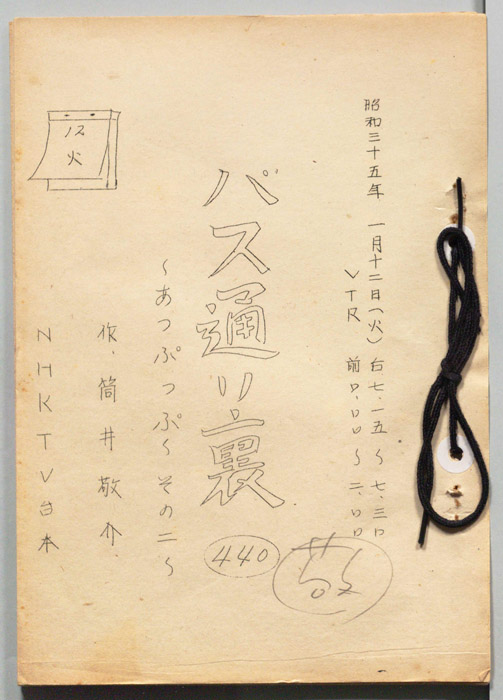 昭和三十五年 一月十二日(火) 后七.一五～七.三〇
VTR 前〇.〇〇～二.〇〇
バス通り裏
440
～あっぷっぷ その二～
作.筒井敬介.
NHKTV台本
12
火
敬